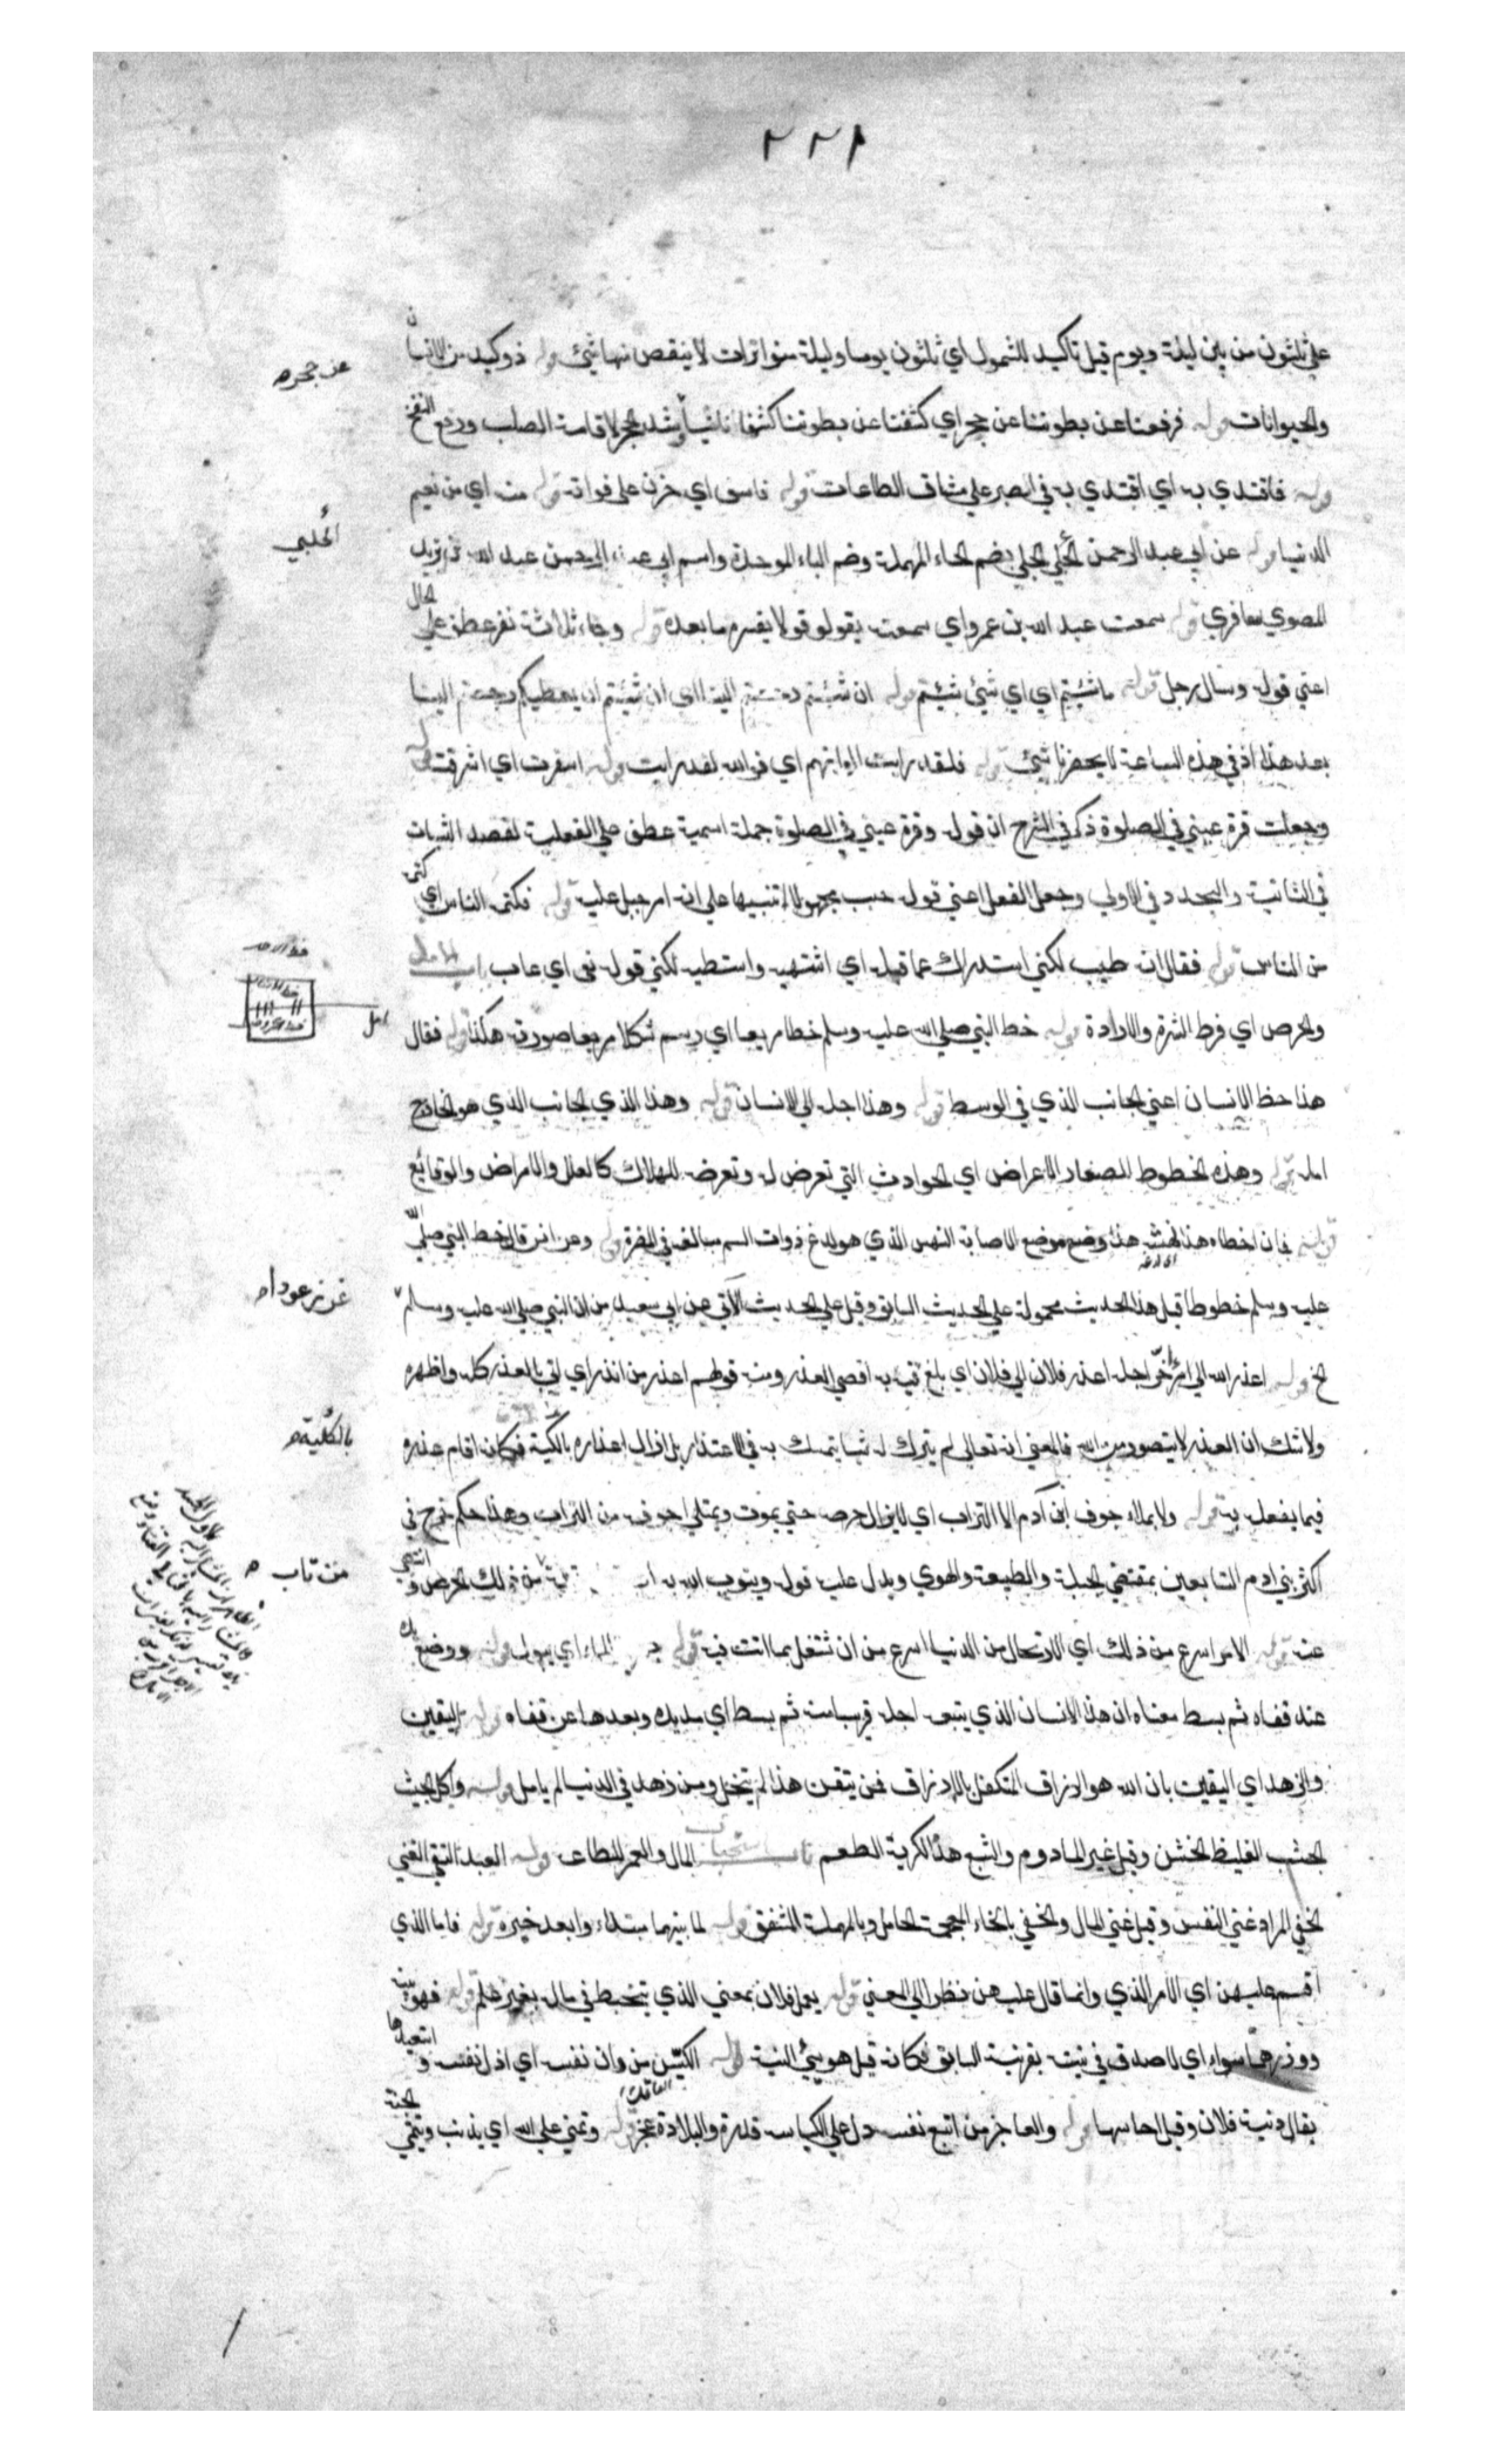 ٢٢١
علي ثلثون من بين ليلة ويوم قيل تاكيد للشمول اي ثلثون يوما وليلة متواترات لا ينقص منها شئ قوله ذو كبد من الانسان
والحيوانات قوله فرفعنا عن بطوننا عن حجر اي كشفنا عن بطوننا كشفا ناشيا وشد الحجر لاقامة الصلب ودفع النفخ
قوله فاقتدي به اي اقتدي به في الصبر علي مشاق الطاعات قوله فاسف اي حزن علي فواته قوله منه اي من نعيم
الدنيا قوله عن ابي عبد الرحمن الحبلي الحبلي بضم الحاء المهملة وضم الباء الموحدة واسم ابي عبد الرحمن عبد الله بن يزيد
المصري معافري قوله سمعت عبد الله بن عمرو اي سمعت يقول قولا يفسره ما بعده قوله وجاء ثلاثة نفر عطف علي الحال
اعني قوله وسال رجل قوله ما شئتم اي اي شئ شئتم قوله ان شئتم رجعتم الينا اي ان شئتم ان يعطيكم رجعتم الينا
بعد هذا اذ في هذه الساعة لا يحضرنا شئ قوله فلقد رايت الوانهم اي فوالله لقد رايت قوله اسفرت اي اشرقت قوله
وجعلت قرة عيني في الصلوة ذكر في الشرح ان قوله وقرة عيني في الصلوة جملة اسمية عطف علي الفعلية لقصد الثبات
في الثانية والتجدد في الاولي وجعل الفعل اعني قوله حبب مجهولا تنبيها علي انه امر جبل عليه قوله فكنى الناس اي كنى
من الناس قوله فقال انه طيب لكني استدراك عما قبله اي اشتهيه واستطيبه لكني قوله نعى اي عاب باب الامل
والحرص اي فرط الشره والارادة قوله خط النبي صلي الله عليه وسلم خطا مربعا اي رسم شكلا مربعا صورته هكذا قوله فقال
هذا خط الانسان اعني الجانب الذي في الوسط قوله وهذا اجله الي الانسان قوله وهذا الذي الجانب الذي هو الخارج
امله قوله وهذه الخطوط الصغار الاعراض اي الحوادث التي تعرض له وتعرضه للهلاك كالعلل والامراض والوقائع
قوله فان اخطاه هذا نهشه هذا وضع موضع الاصابة النهس الذي هو لدغ ذوات السم مبالغة في المضرة قوله وعن انس قال خط النبي صلي الله
عليه وسلم خطوطا قيل هذا الحديث محمولة علي الحديث السابق وقيل علي الحديث الآتي عن ابي سعيد من ان النبي صلي الله عليه وسلم
الخ قوله اعذر الله الي امرئ اخّر اجله اعذر فلان الي فلان اي بلغ به اقصي العذر ومنه قولهم اعذر من انذر اي اتي بالعذر كله واظهره
ولا شك ان العذر لا يتصور من الله فالمعني انه تعالي لم يترك له شيا يتمسك به في الاعتذار بل ازال اعذاره بالكلية فكانه اقام عذره
فيما يفعل به قوله ولا يملاء جوف ابن آدم الا التراب اي لا يزال حرصه حتي يموت ويمتلي جوفه من التراب وهذا حكم خرج في
اكثر بني ادم التابعين بمقتضي الجبلة والطبيعة والهوي ويدل عليه قوله ويتوب الله من ذلك الحرص و انتهي
عنه قوله الامر اسرع من ذلك اي الارتحال من الدنيا اسرع من ان تشتغل بما انت فيه قوله الماء اي يبول قوله ووضع يده
عند قفاه ثم بسط معناه ان هذا الانسان الذي يتبعه اجله قريبا منه ثم بسط اي مد يده وبعدها عن قفاه قوله اليقين
والزهد اي اليقين بان الله هو الرزاق المتكفل بالارزاق فمن تيقن هذا لم يبخل ومن زهد في الدنيا لم يامل قوله واكل الجشب
الجشب الغليظ الخشن وقيل غير المادوم والبشع هذا الكريه الطعم باب استحباب المال والعمر للطاعة قوله العبد التقي الغني
الخفي المراد غني النفس وقيل غني المال والخفي بالخاء المعجمة الخامل وبالمهملة المشفق قوله لما بينهما مبتداء وابعد خبره قوله فاما الذي
اقسم عليهن اي الامر الذي وانما قال عليهن نظرا الي المعني قوله يعمل فلان بمعني الذي يتخبط في ماله بغير علم قوله فهو نيته
ووزرهما سواء اي لا صدق في نيته بقرينة السابق فكانه قيل هو سيئ النية قوله الكيّس من دان نفسه اي اذل نفسه و استعبدها
يقال دنية فلان وقيل حاسبها قوله والعاجز من اتبع نفسه دل علي الكياسة قدرة والبلادة عجز قوله وتمني علي الله اي يذنب ويتمني الجنة
عن حجر
الحبلي
امل
غرز عودا
بالكلية
من تاب